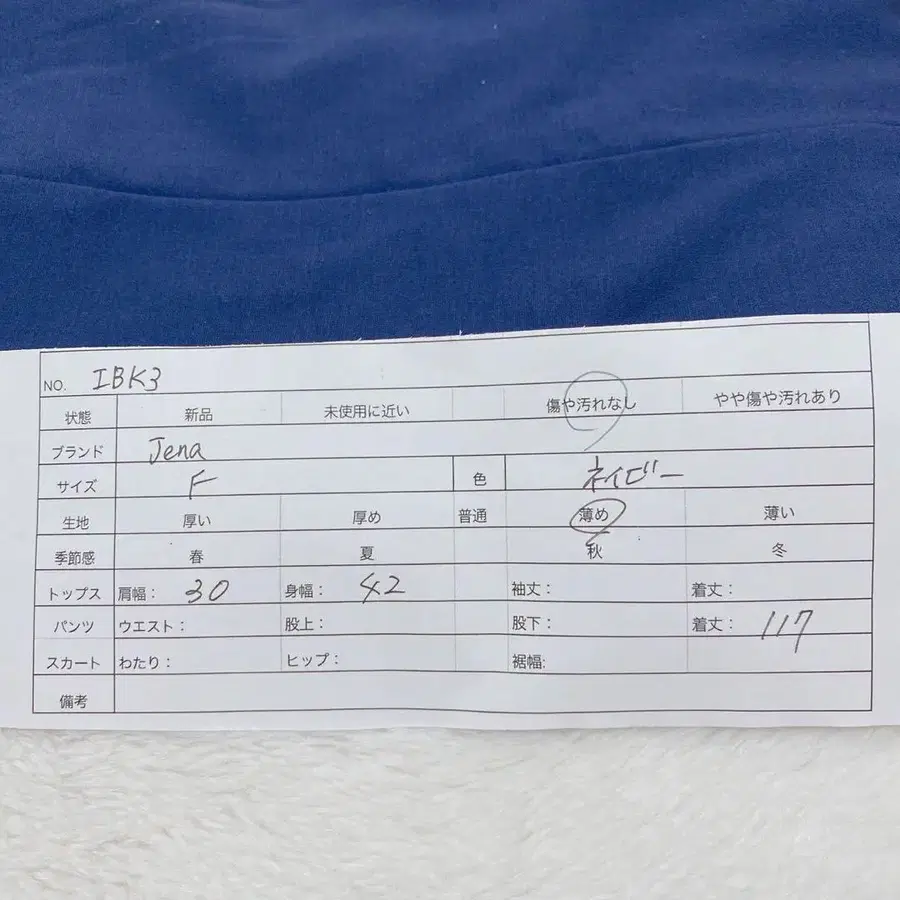 NO. IBK3
状態 新品 未使用に近い 傷や汚れなし やや傷や汚れあり
ブランド Jena
サイズ F 色 ネイビー
生地 厚い 厚め 普通 薄め 薄い
季節感 春 夏 秋 冬
トップス 肩幅： 30 身幅： 42 袖丈： 着丈：
パンツ ウエスト： 股上： 股下： 着丈： 117
スカート わたり： ヒップ： 裾幅:
備考